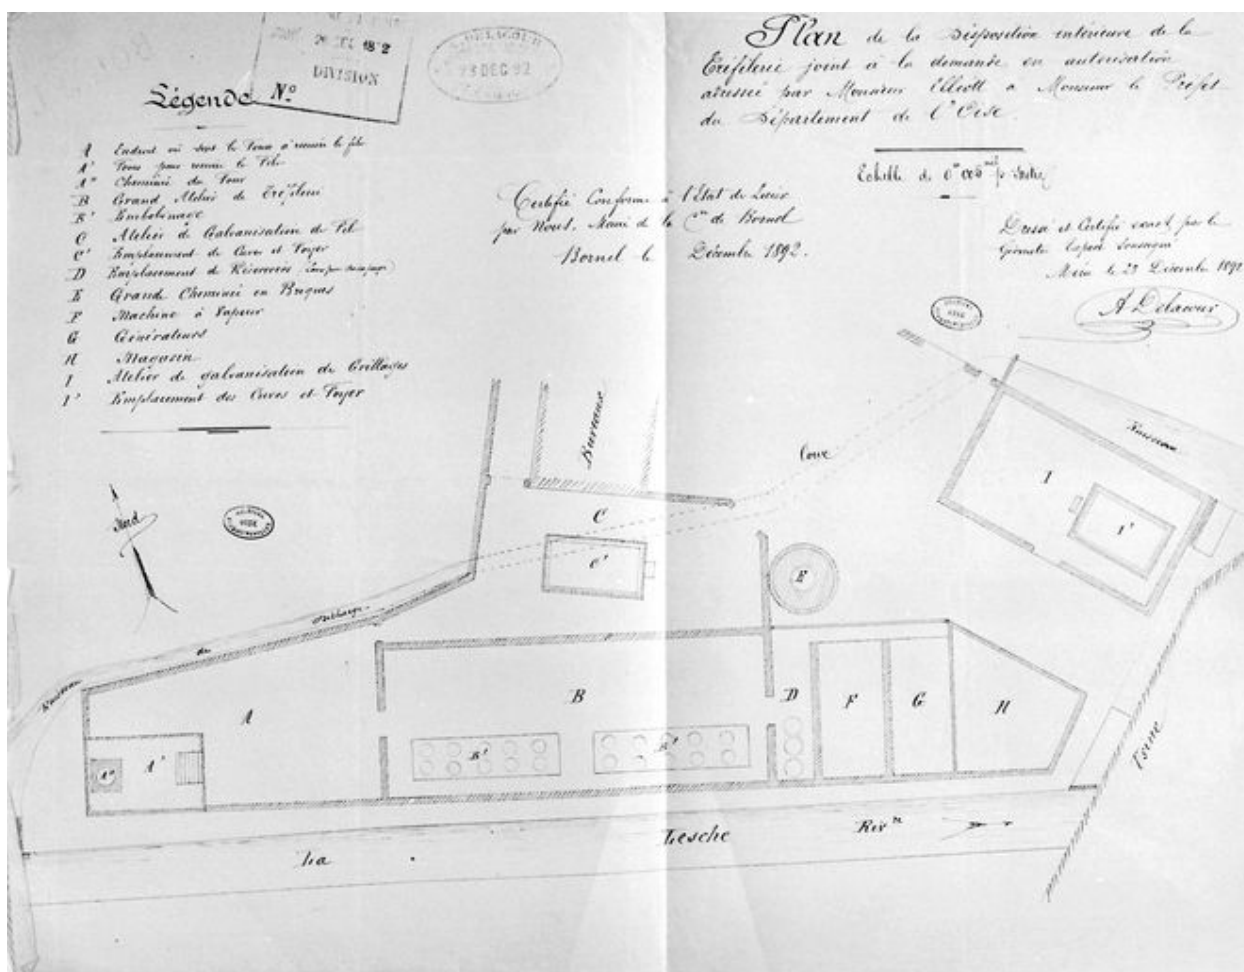 Plan de la Disposition intérieure de la
Tréfilerie joint à la demande en autorisation
adressée par Monsieur Elliott à Monsieur le Préfet
du Département de l'Oise.
Echelle de
DELACOUR
23 DEC 92
DIVISION
Légende N°
A Endroit où sont le Fours à recuire le fil
A' Fours pour recuire le Fil
A" Cheminée du Four
B Grand Atelier de Tréfilerie
B' Embobinage
C Atelier de Galvanisation de Fil
C' Emplacement de Cuves et Foyer
D Emplacement de Réservoirs
E Grande Cheminée en Briques
F Machine à Vapeur
G Générateurs
H Magasin
I Atelier de galvanisation de Grillages
I' Emplacement des Cuves et Foyer
Certifié Conforme à l'Etat de Lieux
par Nous, Maire de la Cne de Bornel
Bornel le Décembre 1892.
Dressé et Certifié exact, par le
Géomètre Expert Soussigné
Méru le 23 Décembre 1892
A Delacour
Nord
Bureaux
Cour
Ruisseau
I
I'
C
C'
E
Ruisseau de décharge
A
A'
A"
B
B'
B'
D
F
G
H
Usine
La Lesche Rivre